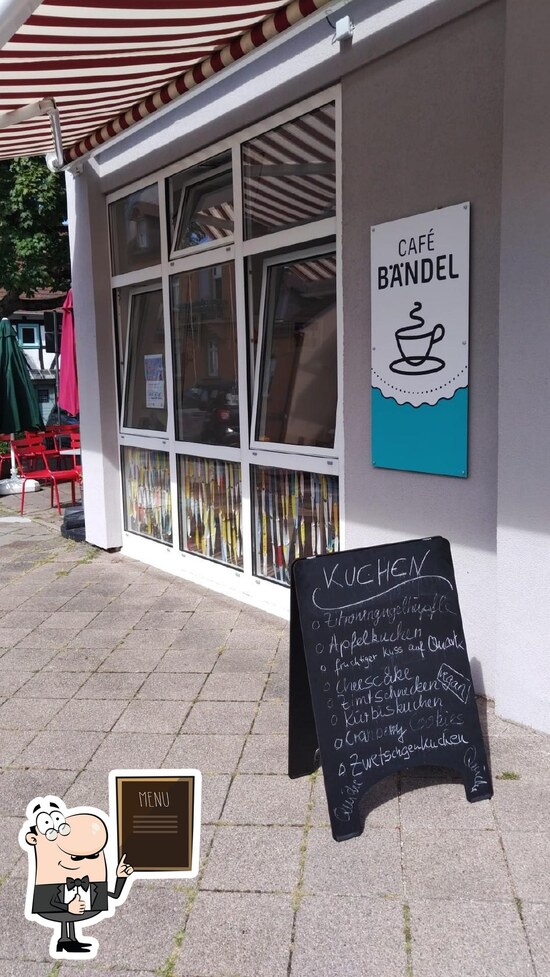 CAFÉ
BÄNDEL
KUCHEN
Apfelkuchen
fruchtiger Kuss auf Quark
Cheesecake
Zimtschnecken vegan
Kürbiskuchen
Cranberry Cookies
Zwetschgenkuchen
Quiche
MENU